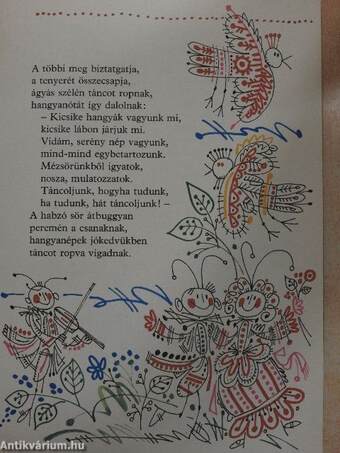 A többi meg biztatgatja,
a tenyerét összecsapja,
ágyás szélén táncot ropnak,
hangyanótát így dalolnak:
– Kicsike hangyák vagyunk mi,
kicsike lábon járjuk mi.
Vidám, serény nép vagyunk,
mind-mind egybetartozunk.
Mézsörünkből igyatok,
nosza, mulatozzatok.
Táncoljunk, hogyha tudunk,
ha tudunk, hát táncoljunk! –
A habzó sör átbuggyan
peremén a csanaknak,
hangyanépek jókedvükben
táncot ropva vigadnak.
Antikvárium.hu